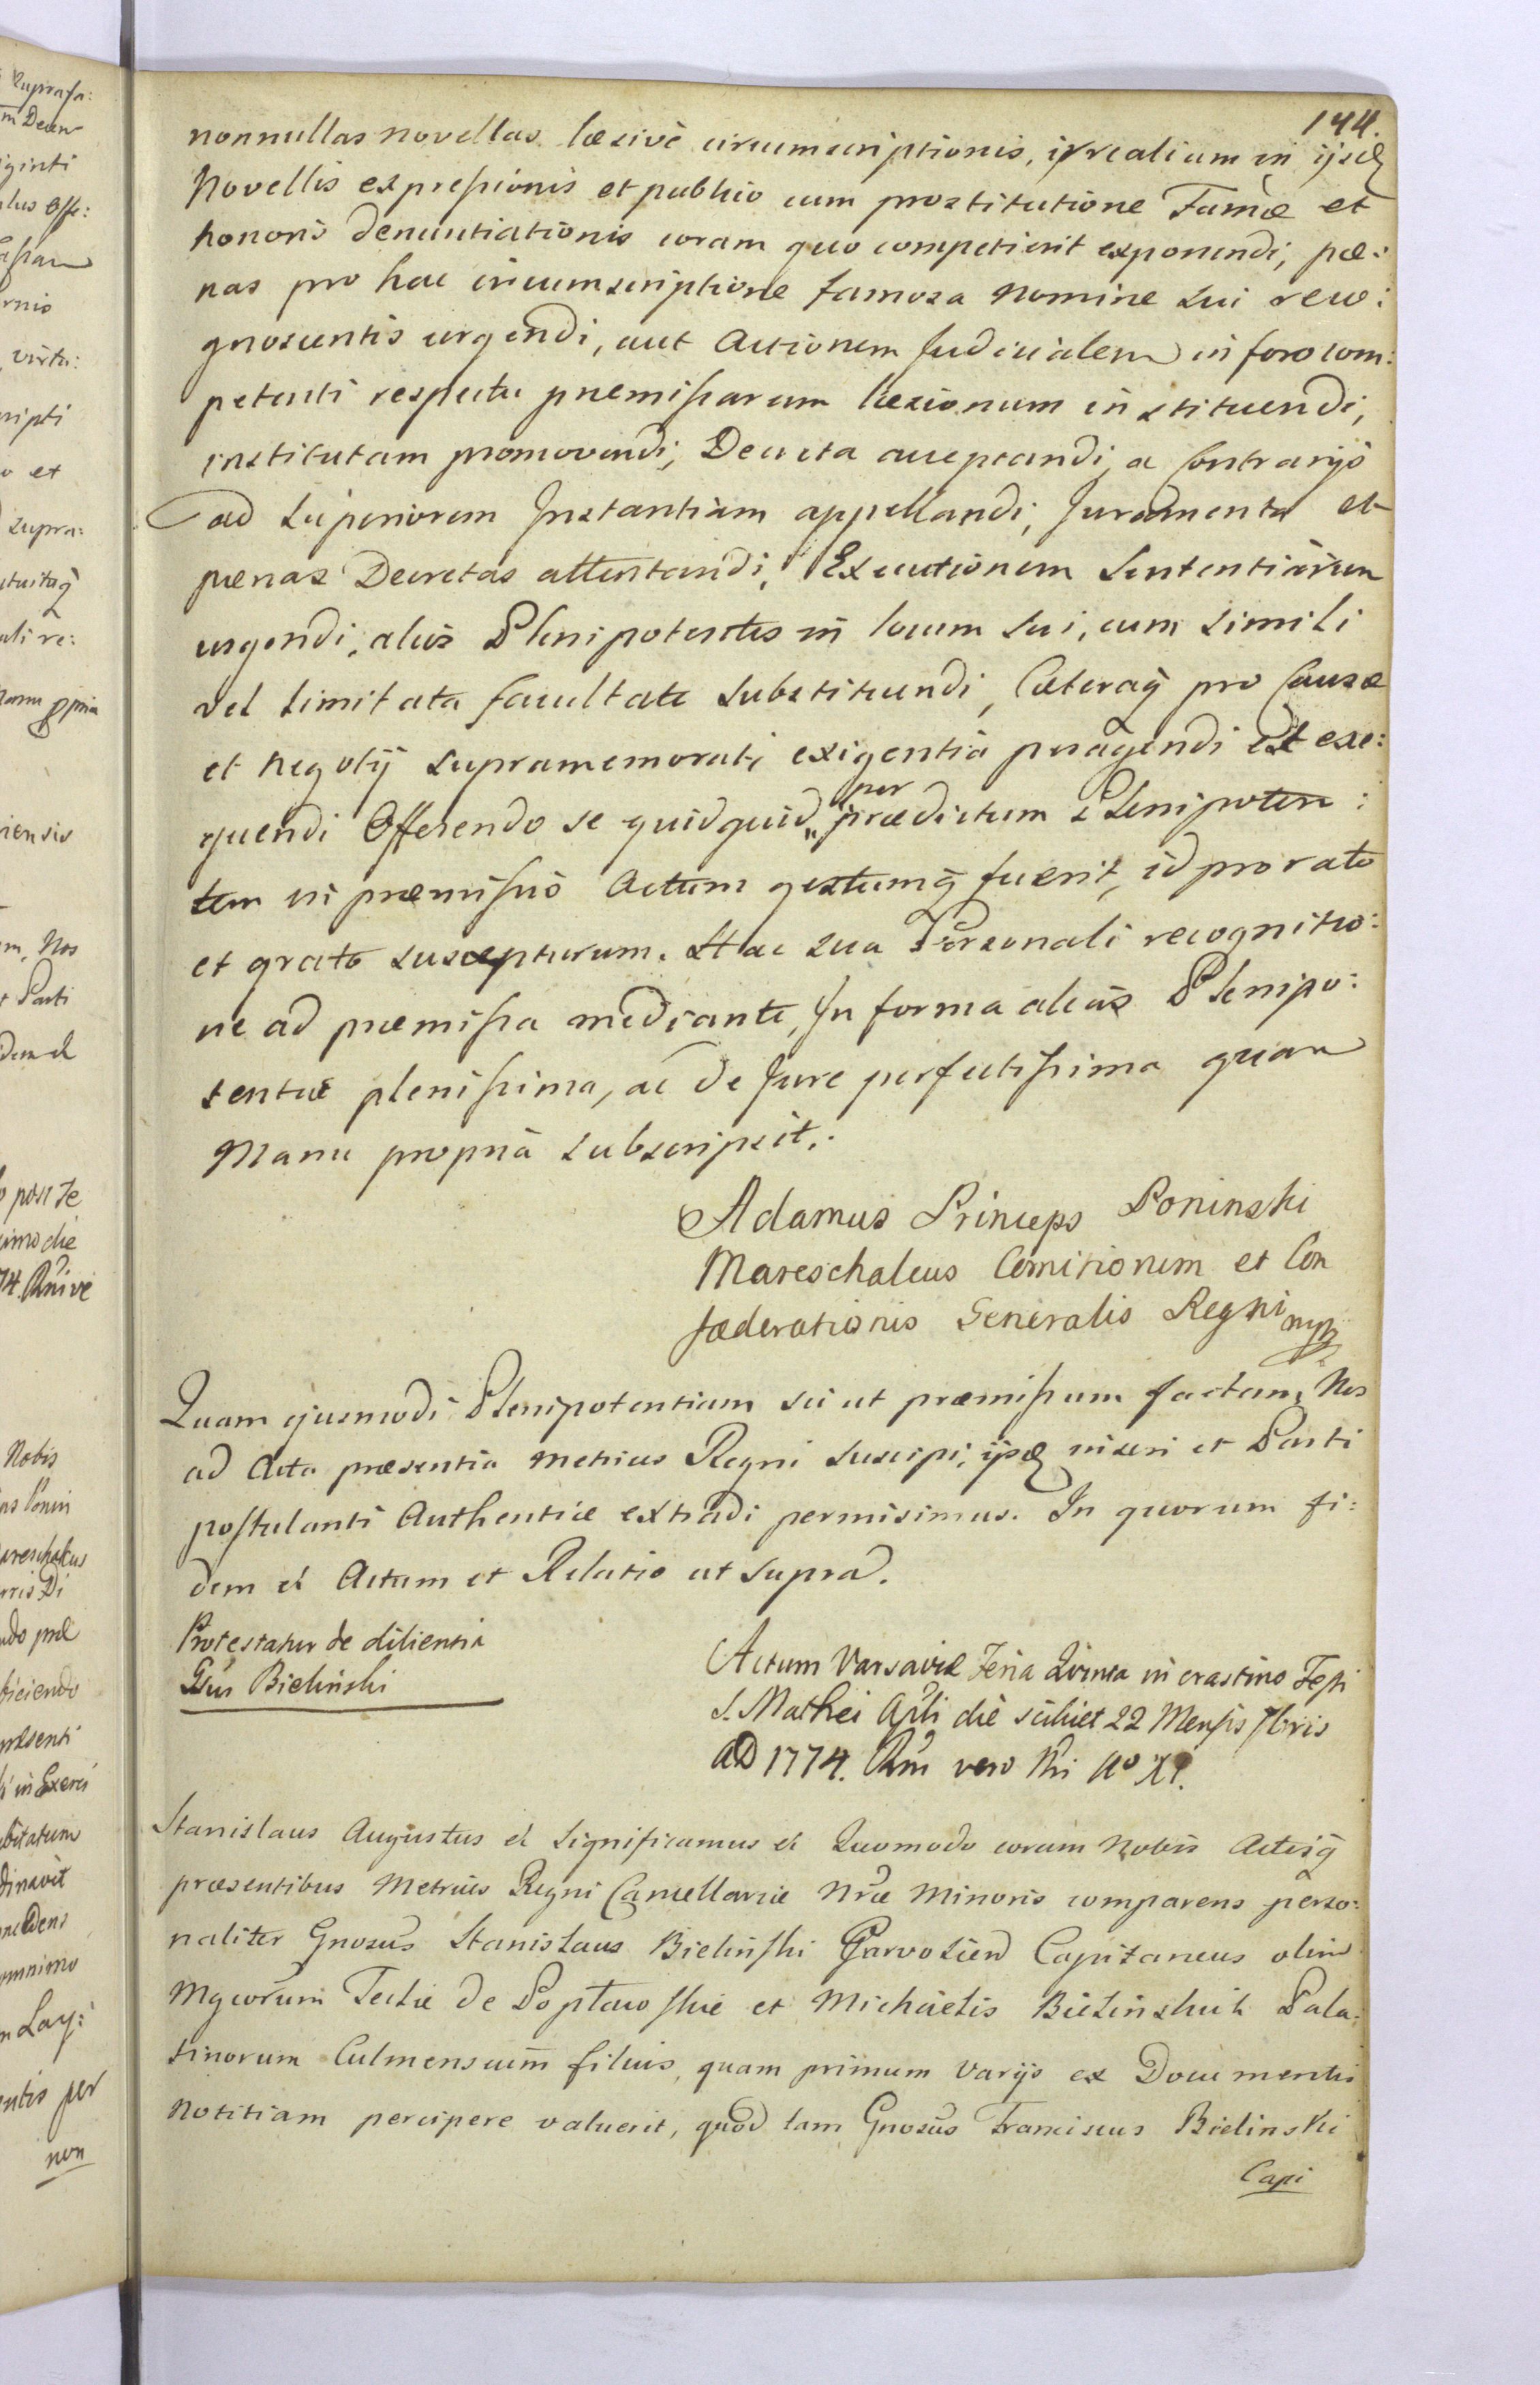 144.
nonnullas novellas læsivè circumscriptionis, irrealium in ijsdē
Novellis expressionis et publico cum prostitutione Famæ et
honoris denuntiationis coram quo competierit exponendi, pœ:
nas pro hac circumscriptione famosa nomine sui reco:
gnoscentis urgendi, aut Actionem Judicialem in foro com:
petenti respectu præmissarum læsionum instituendi,
institutam promovendi, Decreta acceptandi, a Contrarijs
ad superiorem Instantiam appellandi, Juramenta et
pænas Decretas attentandi, Executionem Sententiarum
urgendi, alios Plenipotentes in locum sui, cum simili
vel limitata facultate substituendi, Cæteraq pro Causæ
et negotij supramemorati exigentia peragendi et exe:
quendi Offerendo se quidquid per prædictum Plenipoten:
tem in præmissis Actum gestumq fuerit, id pro rato
et grato suscepturum. Hac sua Personali recognitio:
ne ad præmissa mediante, In forma alias Plenipo:
tentiæ plenissima, ac de Jure perfectissima quam
Manu propria subscripsit.
Adamus Princeps Poninski
Mareschalcus Comitiorum et Con
fæderationis Generalis Regni mp
Quam ejusmodi Plenipotentiam sic ut præmissum factam, Nos
ad Acta præsentia Metrices Regni suscipi, ijsdē inseri et Parti
postulanti Authenticè extradi permisimus. In quorum fi:
dem et Actum et Relatio ut supra.
Protestatur de dilientia
Gsus Bielinski
Actum Varsaviæ Feria Quinta in crastino Festi
S. Mathei Apli die scilicet 22 Mensis 7bris
AD 1774. Rni vero Nri Ao XI.
Stanislaus Augustus et Significamus et Quomodo coram Nobis Actisq
præsentibus Metrices Regni Cancellariæ Nræ Minoris comparens perso:
naliter Gnosus Stanislaus Bielinski Garvolien Capitaneus olim
Mgcorum Teclæ de Popławskie et Michaelis Bielinskich Pala:
tinorum Culmensium filius, quam primum varijs ex Documentis
notitiam percipere valuerit, quod tam Gnosus Franciscus Bielinski
Capi